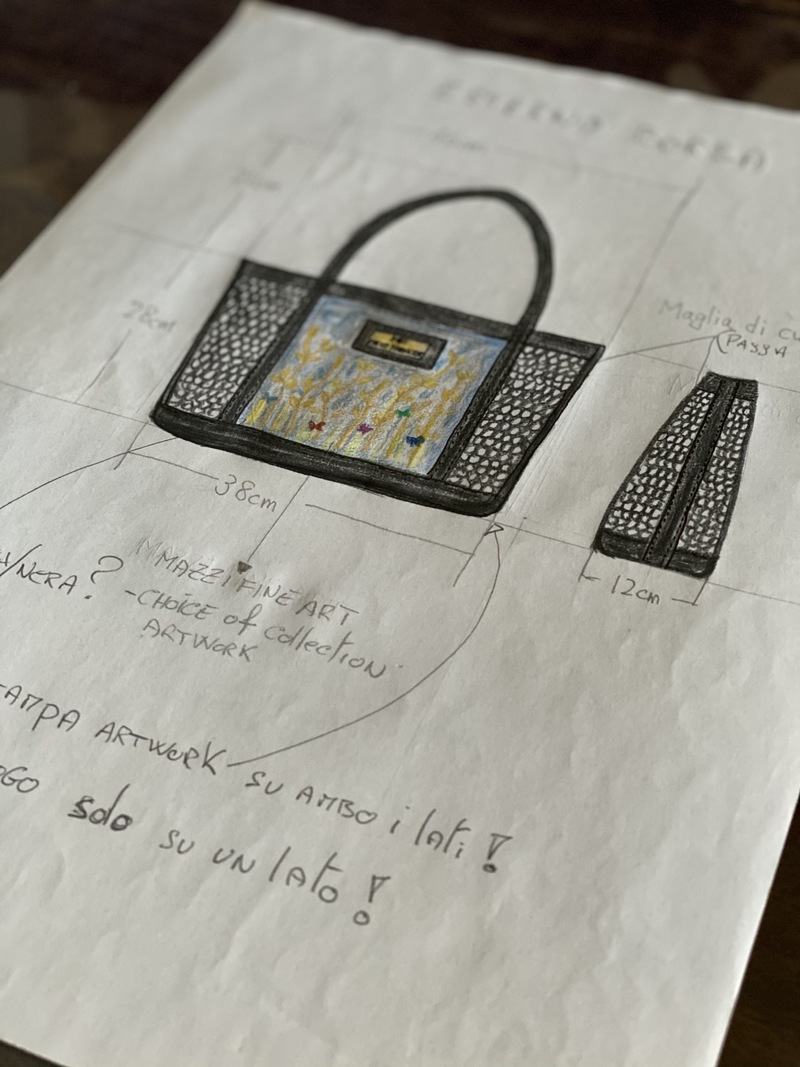 BORSA
28cm
Maglia di
PASSA
38cm
12cm
/NERA?
MMAZZI FINE ART
-CHOICE of collection
ARTWORK
TAMPA ARTWORK SU AMBO i lati!
OGO solo su un lato!